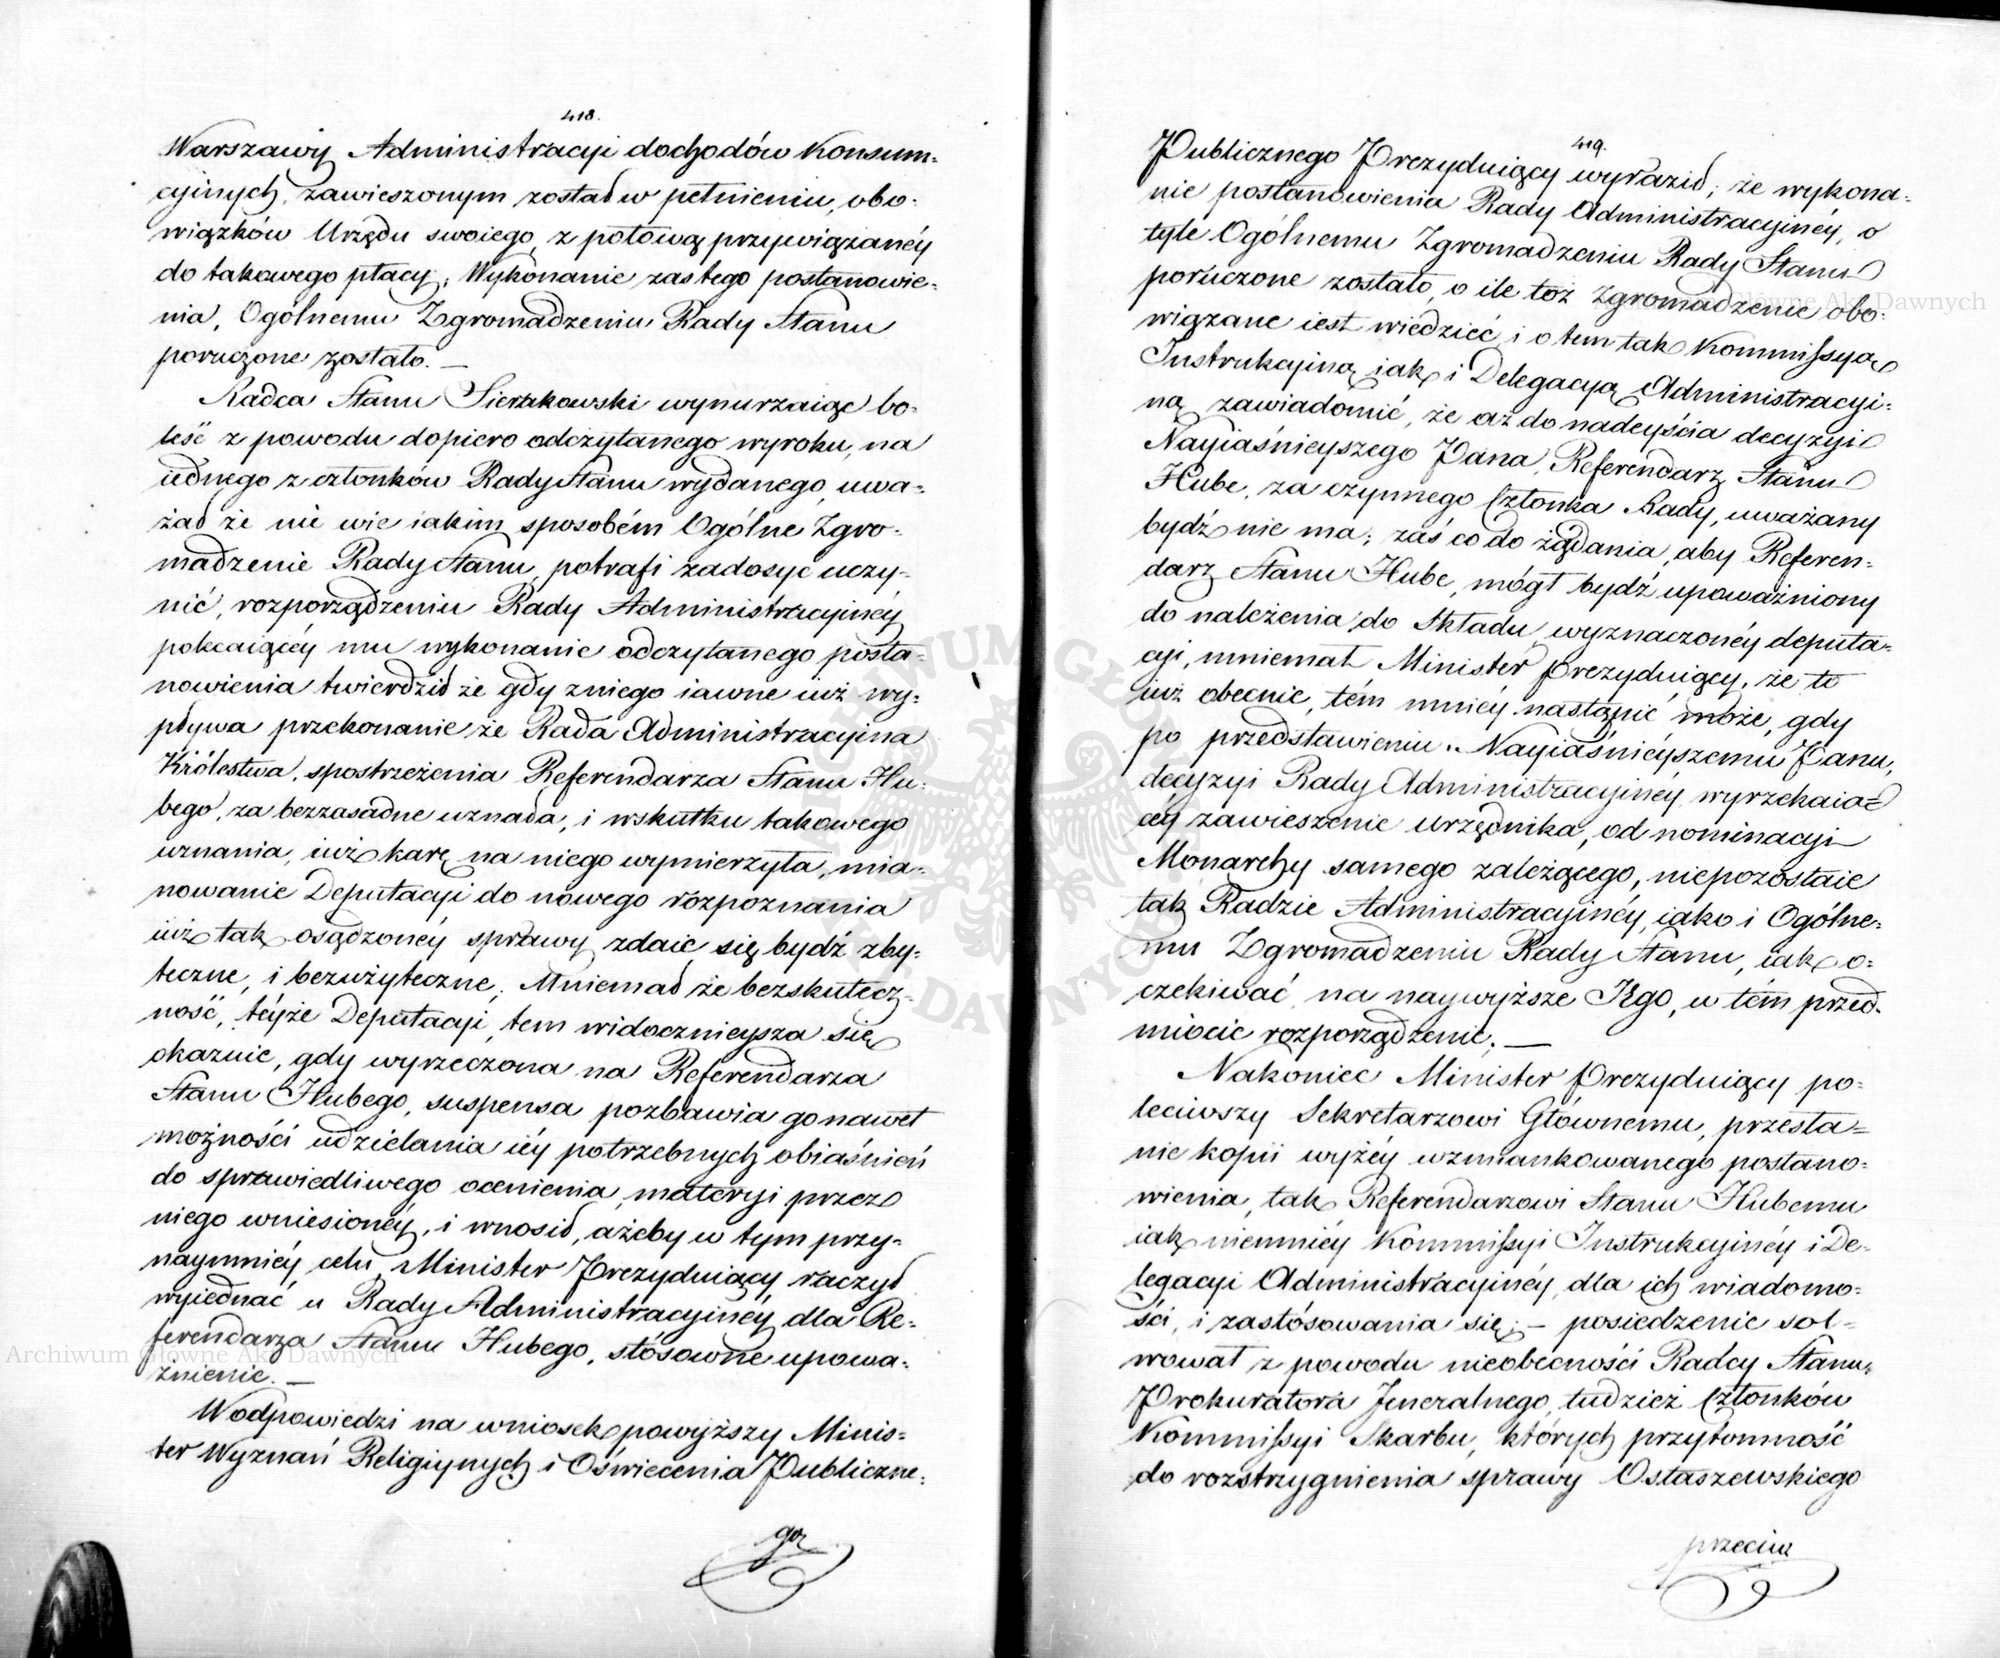 418.
Warszawy Administracyi dochodów Konsum-
cyinych, zawieszonym został w pełnieniu, obo-
wiązków Urzędu swoiego z połową przywiązanéy
do takowego płacy; Wykonanie zaś tego postanowie-
nia, Ogólnemu Zgromadzeniu Rady Stanu
poruczone zostało. —
Radca Stanu Sierakowski wynurzaiąc bo-
leść z powodu dopiero odczytanego wyroku, na
iednego z członków Rady Stanu wydanego, uwa-
żał że nie wie iakim sposobém Ogólne Zgro-
madzenie Rady Stanu, potrafi zadosyć uczy-
nić, rozporządzeniu Rady Administracyinéy
polecaiącéy mu wykonanie odczytanego posta-
nowienia twierdził że gdy z niego iawne iuż wy-
pływa przekonanie że Rada Administracyina
Królestwa, spostrzeżenia Referendarza Stanu Hu-
bego, za bezzasadne uznała, i wskutku takowego
uznania, iuż karę na niego wymierzyła, mia-
nowanie Deputacyi do nowego rozpoznania
iuż tak osądzonéy sprawy zdaie się bydź zby-
teczne, i bezużyteczne; Mniemał że bezskutecz-
ność, téyże Deputacyi, tem widocznieysza się
okazuie, gdy wyrzeczona na Referendarza
Stanu Hubego, suspensa pozbawia go nawet
możności udzielania iéy potrzebnych obiaśnień
do sprawiedliwego ocenienia, materyi przez
niego wniesionéy, i wnosił, ażeby w tym przy-
naymniéy celu, Minister Prezyduiący raczył
wyiednać u Rady Administracyinéy, dla Re-
ferendarza Stanu Hubego, stósowne upowa-
żnienie. —
W odpowiedzi na wniosek powyższy Minis-
ter Wyznań Religiynych i Oświecenia Publiczne-
go
419.
Publicznego Prezyduiący wyraził; że wykona-
nie postanowienia Rady Administracyinéy, o
tyle Ogólnemu Zgromadzeniu Rady Stanu
poruczone zostało, o ile toż Zgromadzenie obo-
wiązane iest wiedzieć i o tem tak Kommissyą
Instrukcyiną iak i Delegacyą Administracyi-
ną zawiadomić, że aż do nadeyścia decyzyi
Nayiaśnieyszego Pana, Referendarz Stanu
Hube, za czynnego Członka Rady, uważany
bydź nie ma; zaś co do żądania, aby Referen-
darz Stanu Hube, mógł bydź upoważniony
do należenia do Składu wyznaczonéy deputa-
cyi, mniemał Minister Prezyduiący, że to
iuż obecnie, tém mniéy nastąpić może, gdy
po przedstawieniu Nayiaśnieyszemu Panu,
decyzyi Rady Administracyinéy wyrzekaią-
céy zawieszenie urzędnika, od nominacyi
Monarchy samego zależącego, niepozostaie
tak Radzie Administracyinéy, iako i Ogólne-
mu Zgromadzeniu Rady Stanu, iak o-
czekiwać na naywyższe Jego, w tém przed-
miocie rozporządzenie; —
Nakoniec Minister Prezyduiący po-
leciwszy Sekretarzowi Głównemu, przesła-
nie kopii wyżéy wzmiankowanego postano-
wienia, tak Referendarzowi Stanu Hubemu
iak niemniéy Kommissyi Instrukcyinéy i De-
legacyi Administracyinéy, dla ich wiadomo-
ści, i zastósowania się; — posiedzenie sol-
wował z powodu nieobecności Radcy Stanu,
Prokuratora Jeneralnego, tudzież Członków
Kommissyi Skarbu, których przytomność
do rozstrzygnienia sprawy Ostaszewskiego
przeciw
Archiwum Główne Akt Dawnych